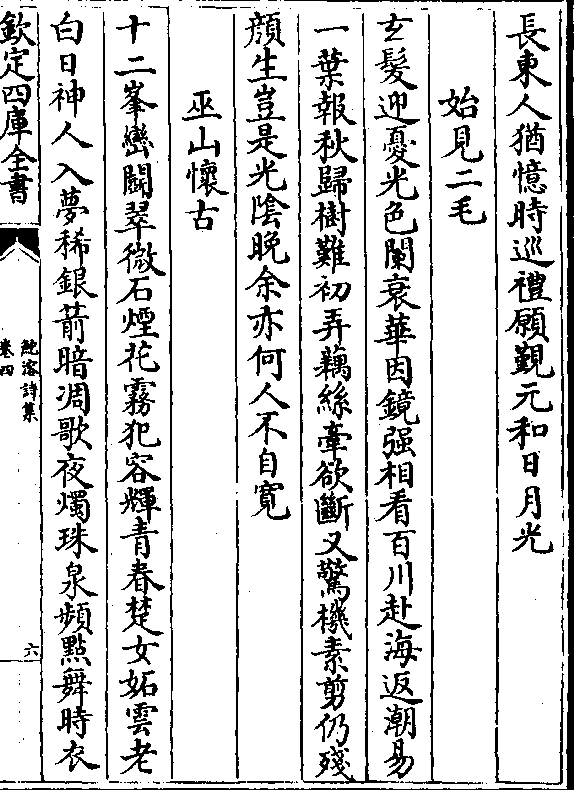 長東人猶憶時巡禮願覲元和日月光
始見二毛
玄髮迎憂光色闌衰華因鏡强相看百川赴海返潮易
一葉報秋歸樹難初弄藕絲牽欲斷又驚機素剪仍殘
顔生豈是光陰晚余亦何人不自寛
巫山懷古
十二峯巒鬭翠微石煙花霧犯容輝青春楚女妬雲老
白日神人入夢稀銀箭暗凋歌夜燭珠泉頻點舞時衣
欽定四庫全書
鮑溶詩集
卷四
六